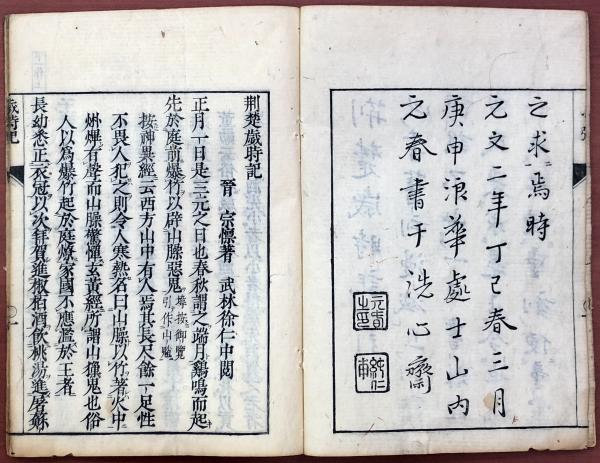 之求焉時
元文二年丁巳春三月
庚申浪華處士山内
元春書于洗心齋
荆楚歲時記
晉 宗懔著 武林徐仁中閲
正月一日是三元之日也春秋謂之端月鷄鳴而起
先於庭前爆竹以辟山臊惡鬼
按神異經云西方山中有人焉其長尺餘一足性
不畏人犯之則令人寒熱名曰山臊以竹著火中
烞熚有聲而山臊驚憚玄黄經所謂山𤢖鬼也俗
人以爲爆竹起於庭燎家國不應濫於王者
長幼悉正衣冠以次拜賀進椒栢酒飲桃湯進屠蘇
歲時記
一